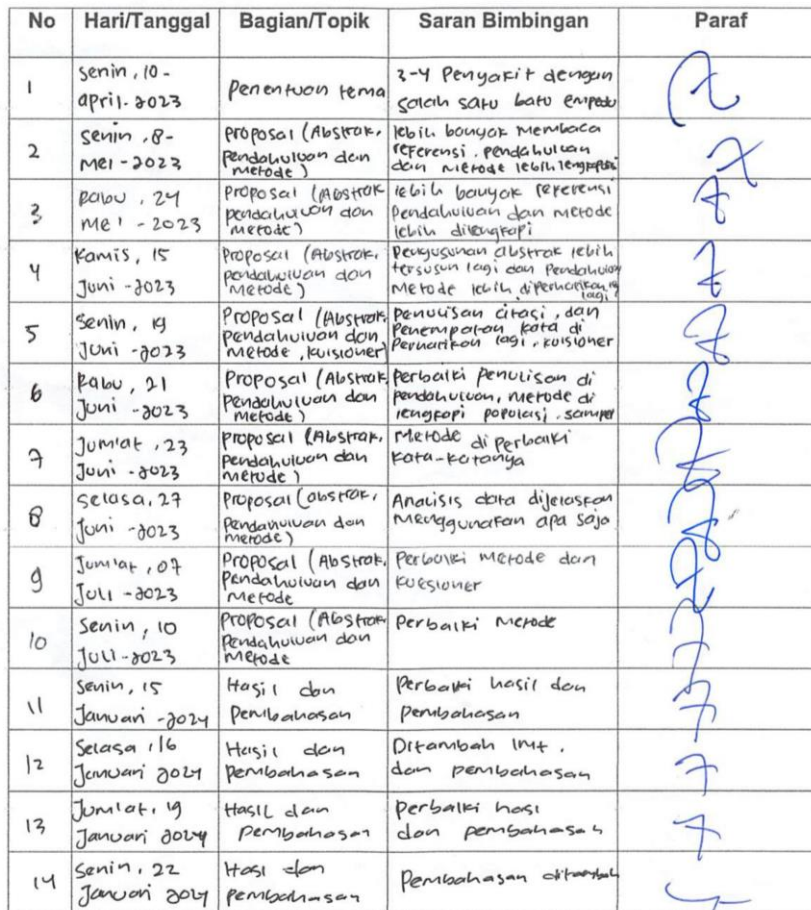 No Hari/Tanggal Bagian/Topik Saran Bimbingan Paraf
1
Senin, 10-
april-2023
penentuan tema
3-4 Penyakit dengan
salah satu batu empedu
2
Senin, 8-
Mei-2023
proposal (Abstrak,
pendahuluan dan
metode)
lebih banyak membaca
referensi, pendahuluan
dan metode lebih lengkapi
3
Rabu, 24
Mei-2023
Proposal (Abstrak
pendahuluan dan
metode)
lebih banyak referensi
Pendahuluan dan metode
lebih dilengkapi
4
Kamis, 15
Juni-2023
Proposal (Abstrak,
pendahuluan dan
Metode)
Penyusunan abstrak lebih
tersusun lagi dan Pendahuluan
Metode lebih diperhatikan
lagi
5
Senin, 19
Juni-2023
Proposal (Abstrak,
pendahuluan dan
metode, kuisioner)
Penulisan citasi, dan
Penempatan kata di
Perhatikan lagi, kuisioner
6
Rabu, 21
Juni-2023
Proposal (Abstrak,
Pendahuluan dan
metode)
Perbaiki penulisan di
pendahuluan, metode di
lengkapi populasi, sampel
7
Jum'at, 23
Juni-2023
proposal (Abstrak,
Pendahuluan dan
metode)
Metode diperbaiki
kata-katanya
8
Selasa, 27
Juni-2023
Proposal (abstrak,
Pendahuluan dan
metode)
Analisis data dijelaskan
Menggunakan apa saja
9
Jum'at, 07
Juli-2023
Proposal (Abstrak,
Pendahuluan dan
Metode
Perbaiki Metode dan
kuesioner
10
Senin, 10
Juli-2023
Proposal (Abstrak
Pendahuluan dan
Metode
Perbaiki Metode
11
Senin, 15
Januari-2024
Hasil dan
Pembahasan
Perbaiki hasil dan
pembahasan
12
Selasa, 16
Januari 2024
Hasil dan
pembahasan
Ditambah IMT,
dan pembahasan
13
Jum'at, 19
Januari 2024
Hasil dan
Pembahasan
Perbaiki hasi
dan pembahasan
14
Senin, 22
Januari 2024
Hasi dan
pembahasan
Pembahasan ditambah